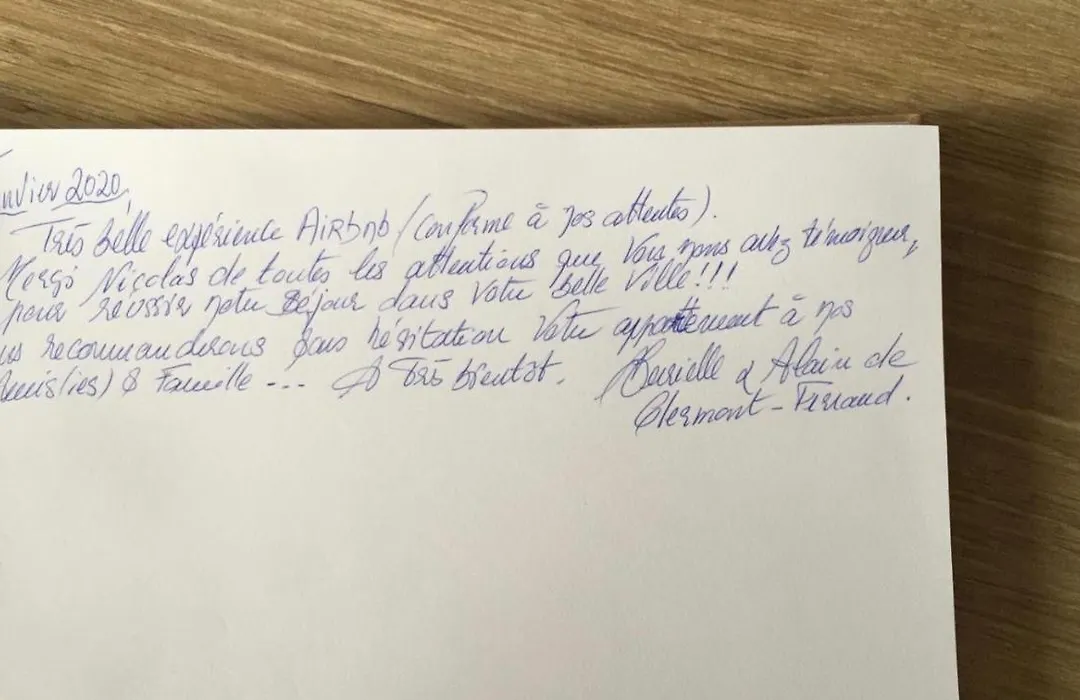 nvier 2020,
Très belle expérience AirBnb (conforme à nos attentes).
Merçi Niçolas de toutes les attentions que Vous nous avez témoigner,
pour réussir notre séjour dans Votre belle Ville!!!
us recommanderons sans hésitation Votre appartement à nos
Amis(ies) & Famille --- A Très bientôt. & Alain de
Clermont-Ferrand.